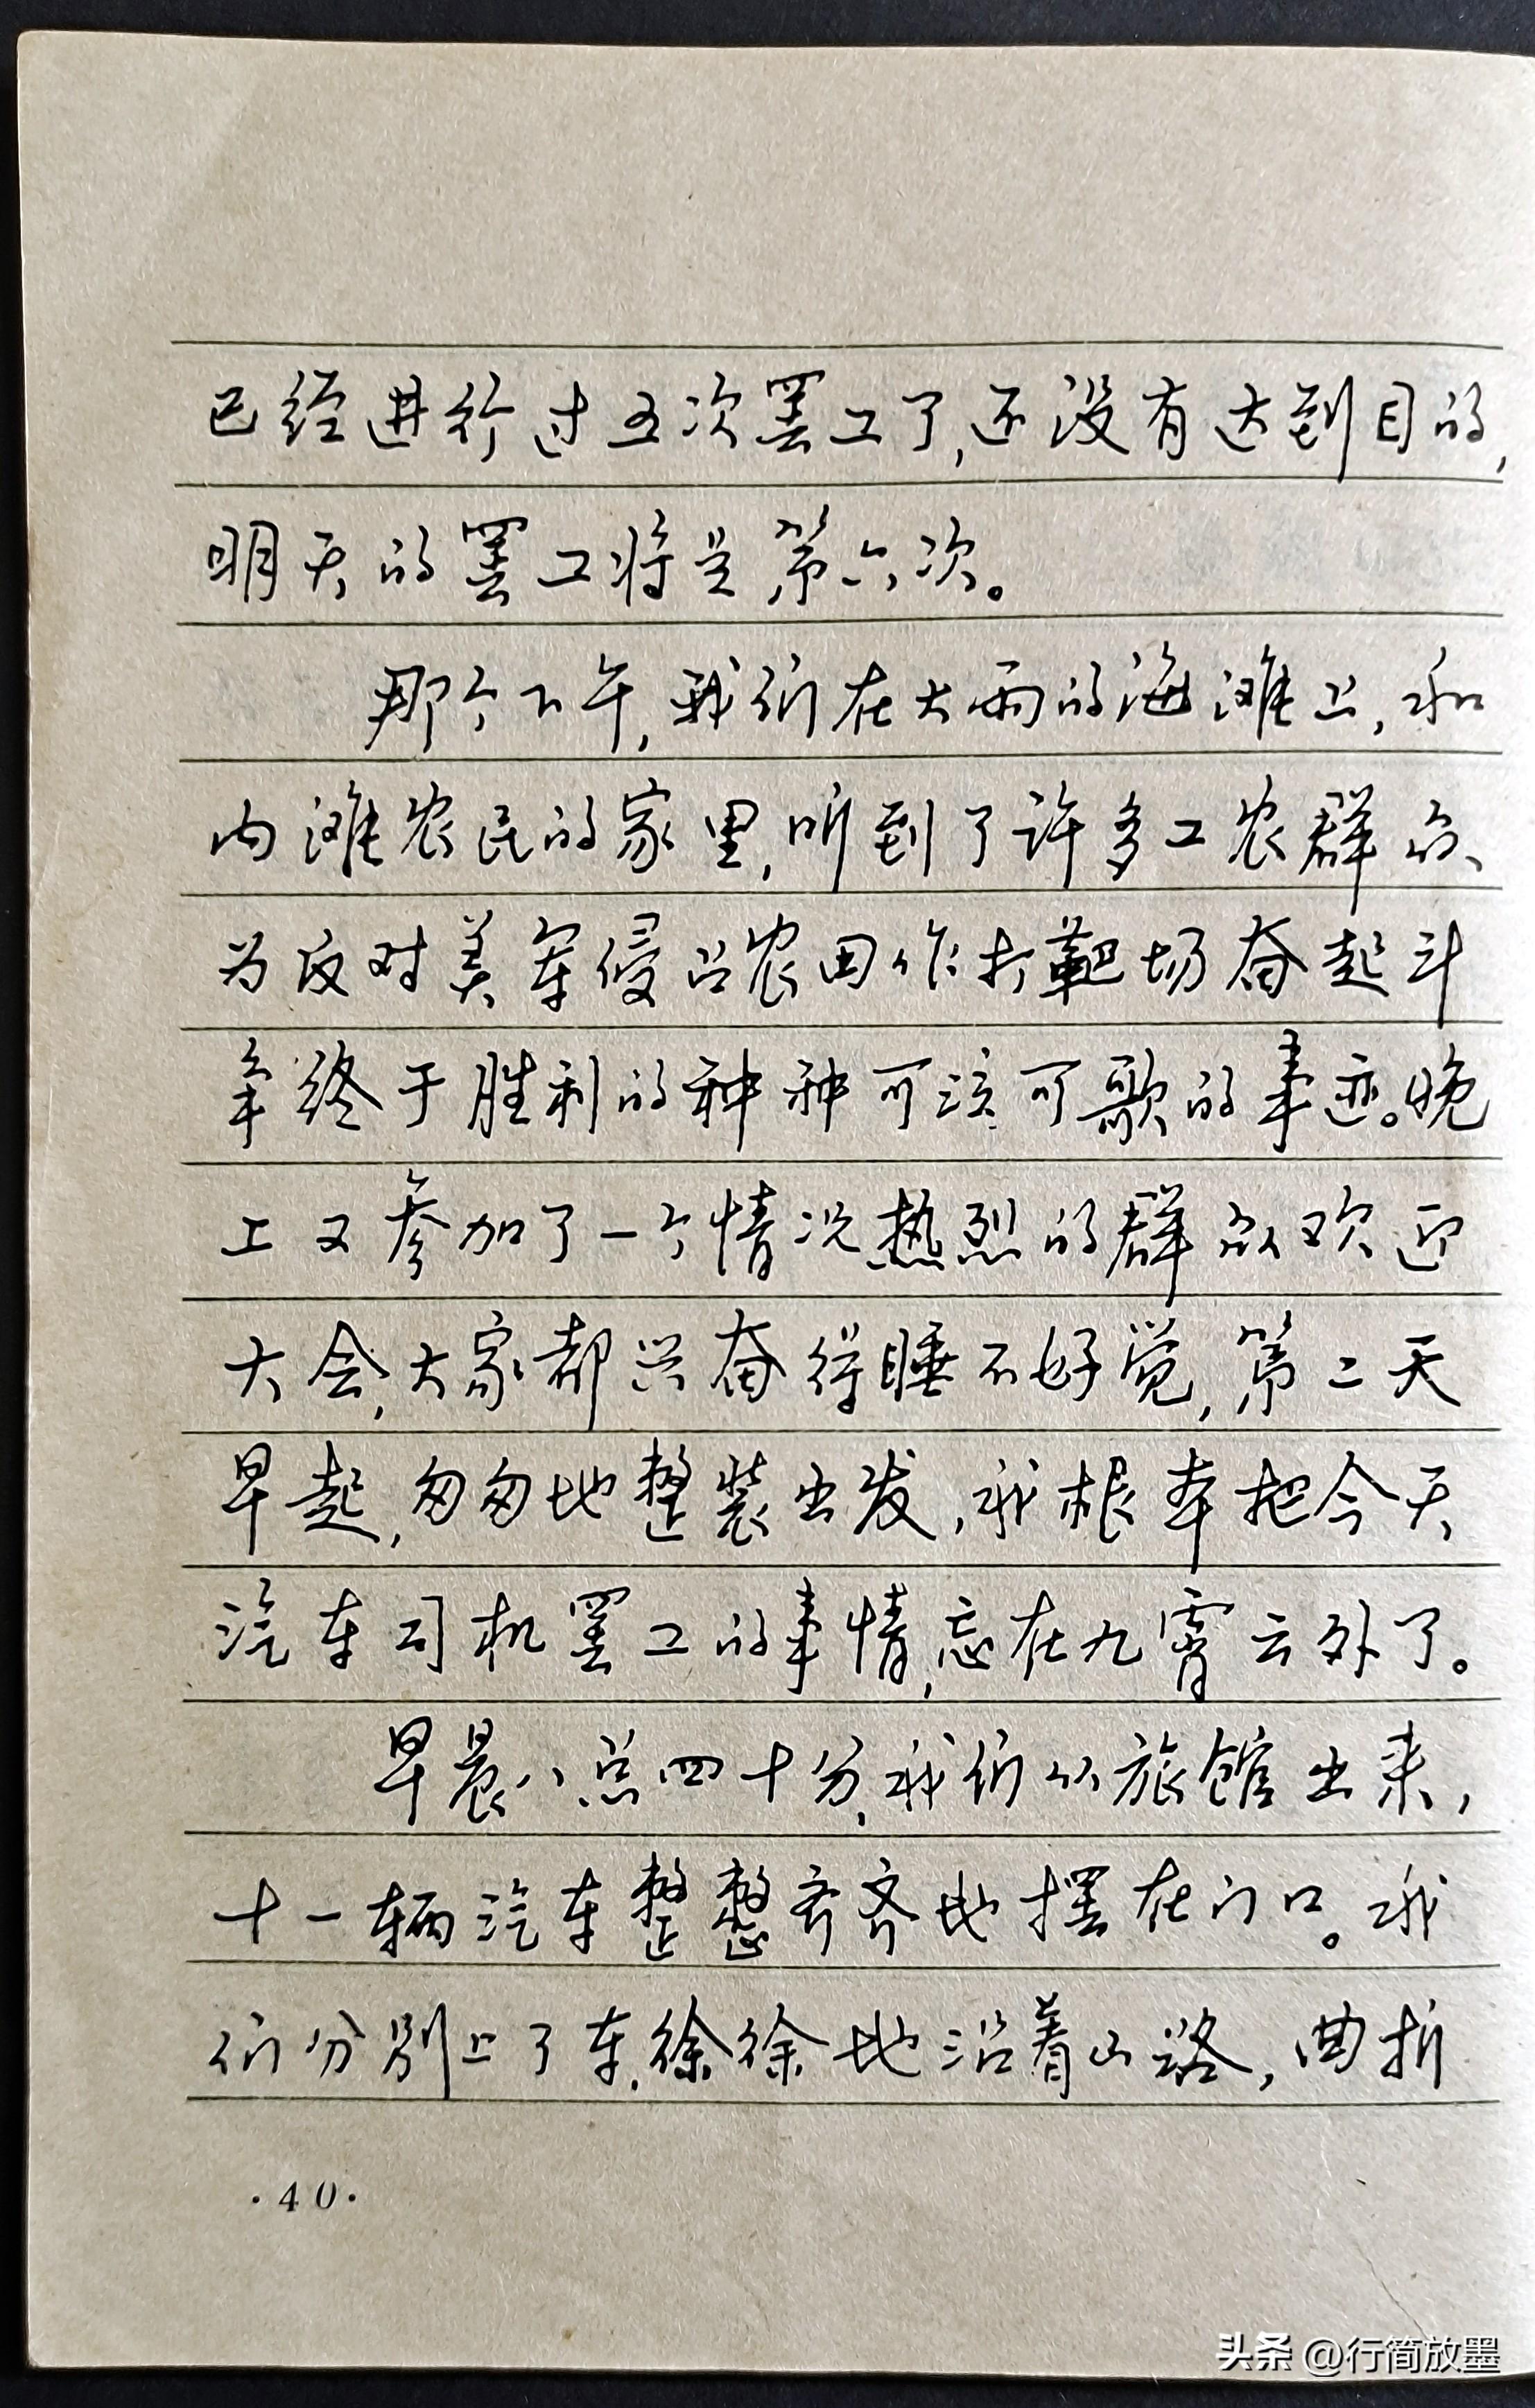 已经进行过五次罢工了,还没有达到目的,
明天的罢工将是第六次。
那个下午,我们在大雨的海滩上,和
内滩农民的家里,听到了许多工农群众、
为反对美军侵占农田作打靶场奋起斗
争终于胜利的种种可泣可歌的事迹。晚
上又参加了一个情况热烈的群众欢迎
大会,大家都兴奋得睡不好觉,第二天
早起,匆匆地整装出发,我根本把今天
汽车司机罢工的事情,忘在九霄云外了。
早晨八点四十分,我们从旅馆出来,
十一辆汽车整整齐齐地摆在门口。我
们分别上了车,徐徐地沿着山路,曲折
·40·
头条 @行简放墨